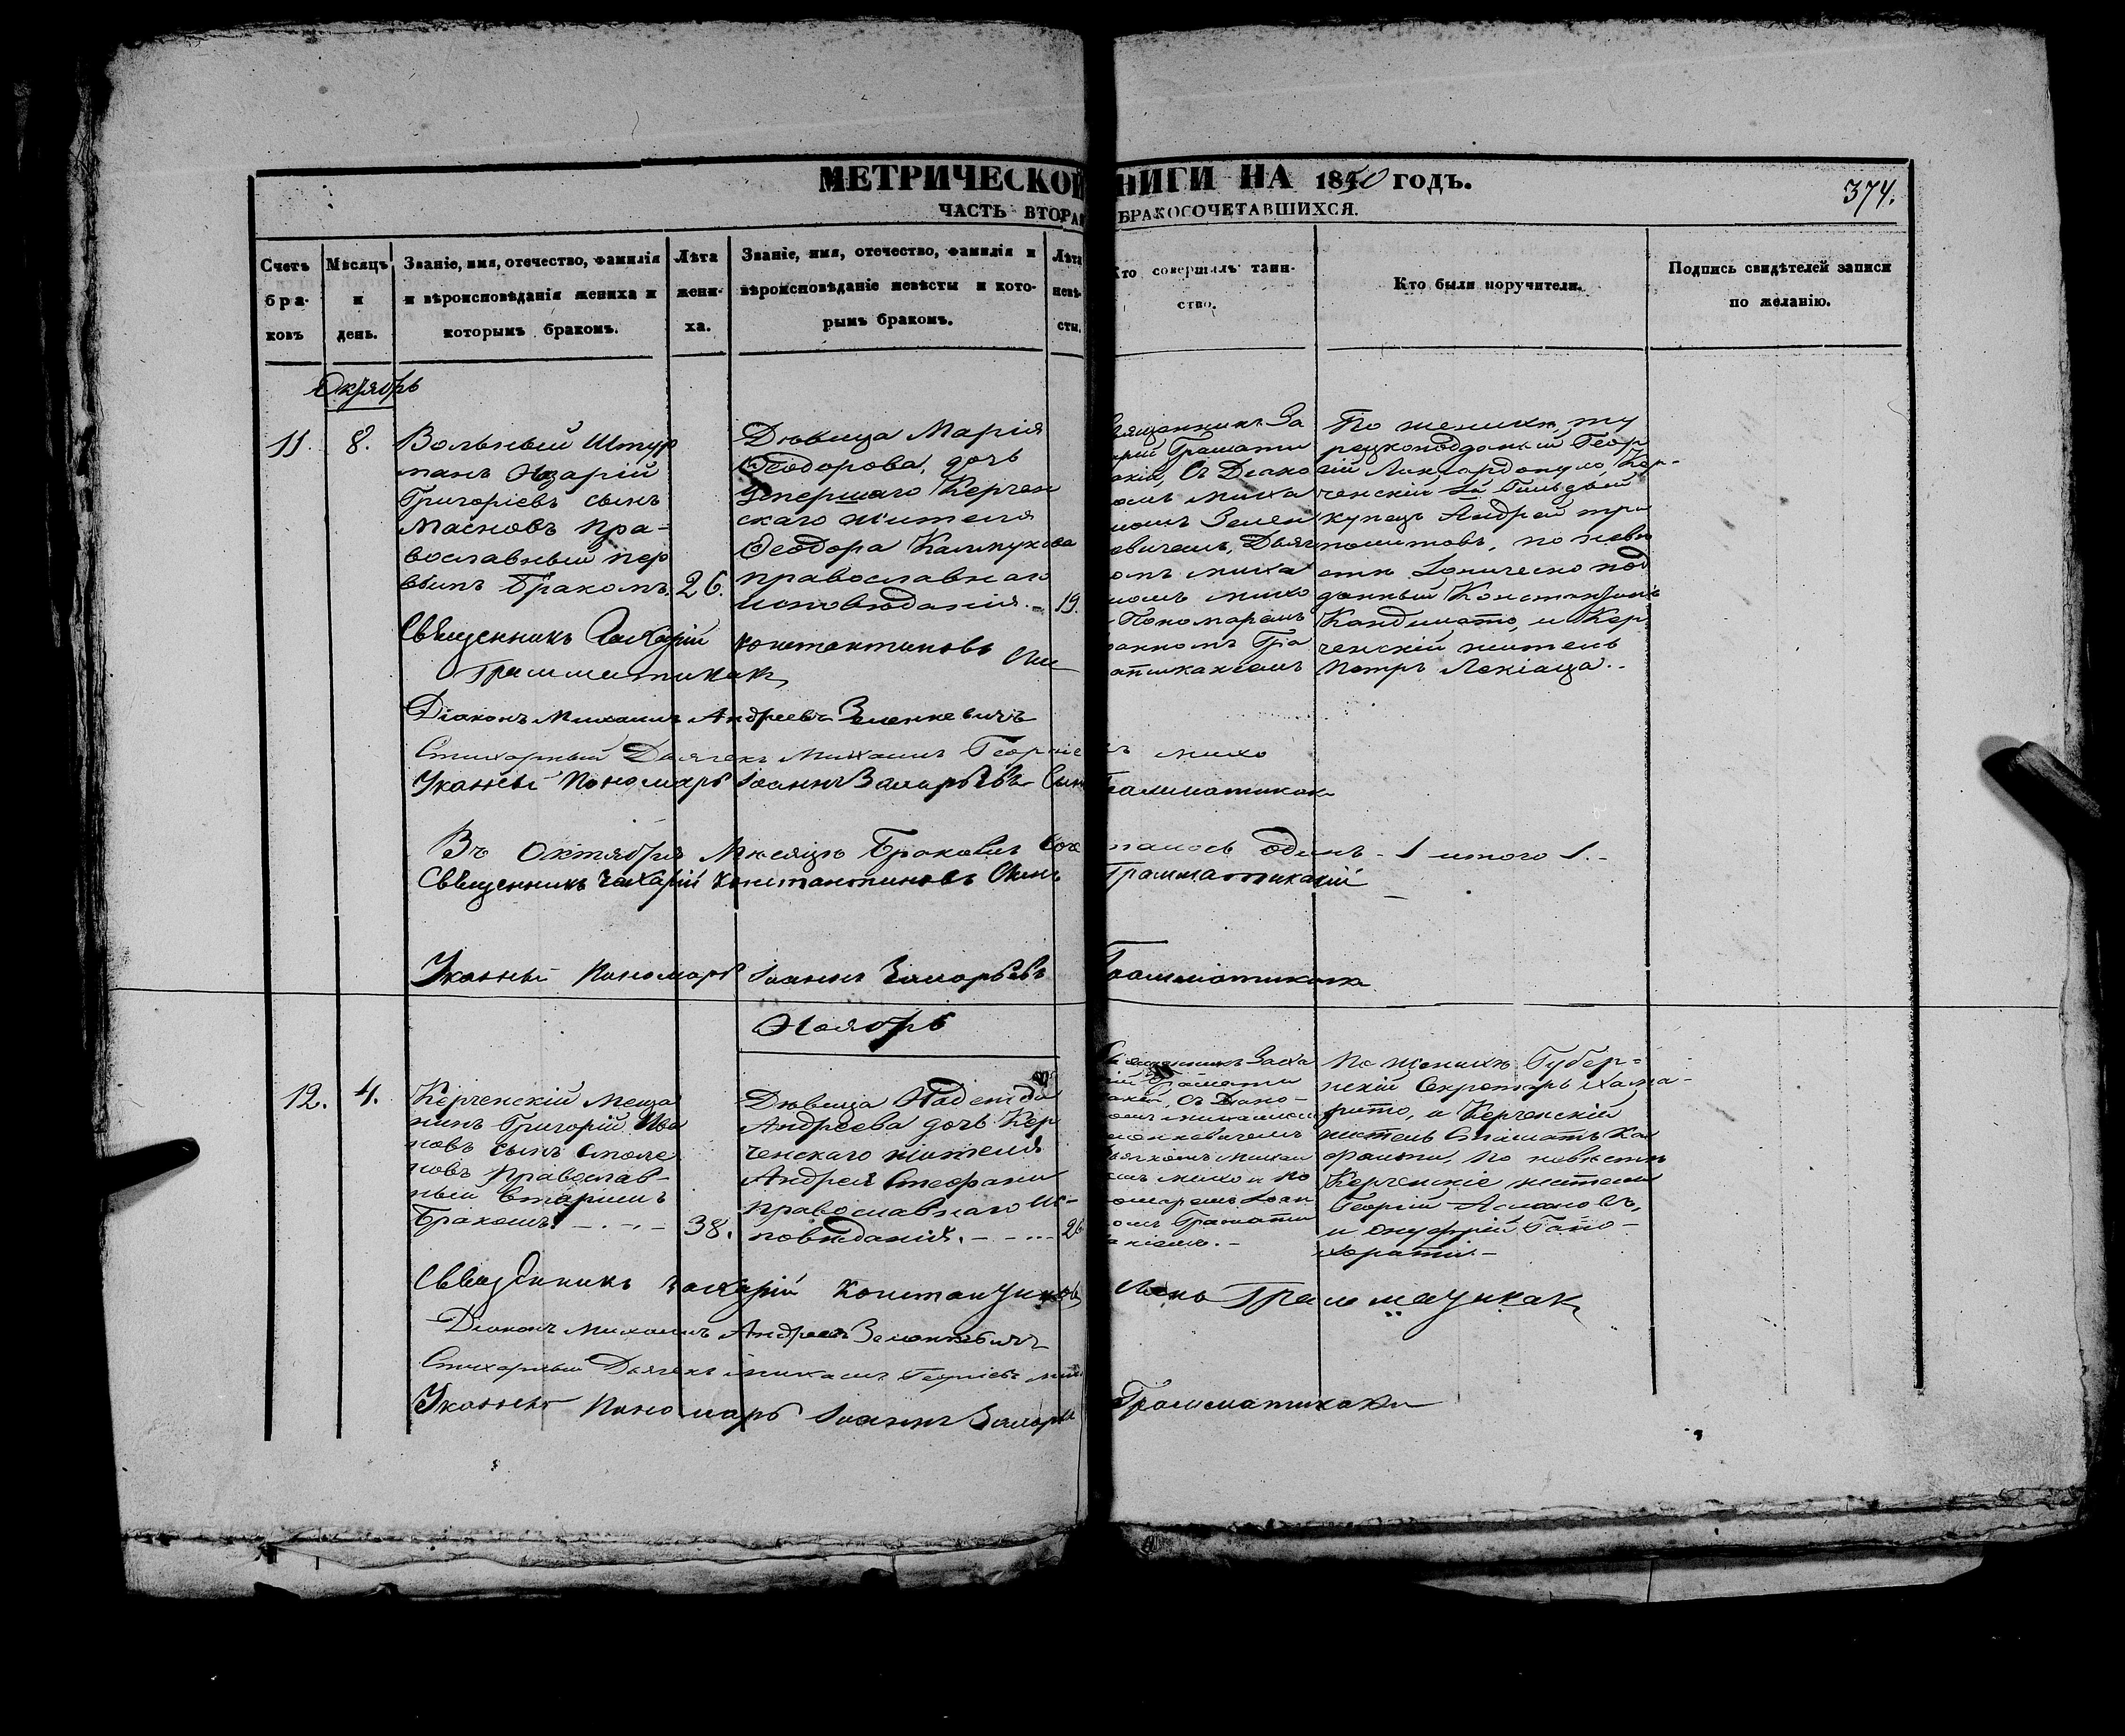 МЕТРИЧЕСКОЙ
НИГИ НА 1850 ГОДЪ.
374.
ЧАСТЬ ВТОРАЯ
БРАКОСОЧЕТАВШИХСЯ.
Счетъ
бра-
ковъ
Мѣсяцъ
и
день.
Званіе, имя, отечество, фамилія
и вѣроисповѣданія жениха и
которымъ бракомъ.
Лѣта
жени-
ха.
Званіе, имя, отечество, фамилія и
вѣроисповѣданіе невѣсты и кото-
рымъ бракомъ.
Лѣта
невѣ-
сты.
Кто совершалъ таин-
ство.
Кто были поручители.
Подпись свидѣтелей записи
по желанію.
Октябрь
11.
8.
Вольный Штур
манъ Назарій
Григоріевъ сынъ
Масновъ пра-
вославный пер
вымъ бракомъ.
26.
Дѣвица Марія
Ѳеодорова, дочь
умершаго Керчен
скаго жителя
Ѳеодора
православнаго
исповѣданія.
19.
Священникъ За
рій Грамати
акій, Съ Діако
омъ Миха
момъ Зелен
евичемъ, Дьяч
омъ Миха
иломъ Михо
Пономаремъ
оанномъ Гра
матикакіемъ
По женихѣ, ту
рецкоподданый Геор
гій Кер-
ченскій Гильдіи
купецъ Андрей
по невѣ
стѣ Іоническо под
данный Константинъ
и Кер
ченскій житель
Петръ
Священникъ Захарій Константиновъ
Грамматикаки
Діаконъ Михаилъ Андреевъ Зеленкевичъ
Стихарный Дьячекъ Михаилъ Георгіевъ Михо
Указный Пономарь Іоаннъ Захарьевъ Сынъ Грамматикаки
Въ Октябрѣ Мѣсяцѣ Браковъ Соче
талось Одинъ - 1 итого 1.-
Священникъ Захарій Константиновъ Сынъ Грамматикакій
Указный Пономарь Іоаннъ Захарьевъ Грамматикаки
Ноябрь
12.
4.
Керченскій Меща
нинъ Григорій Ива
новъ сынъ
новъ Православ-
ный вторымъ
Бракомъ.
38.
Дѣвица Надежда
Андреева дочь Кер
ченскаго жителя
Андрея Стефани
православнаго ис-
повѣданія.
26
Священникъ Заха
рій Грамати
акій, Съ Діако-
омъ Михаиломъ
ленкевичемъ
Дьячкомъ Михаи
омъ Михо и по
омаремъ Іоан
омъ Грамати
акіемъ.-
По женихѣ Губер-
нскій Секретарь
и Керченскій
житель
по невѣстѣ
Керченскіе жители
Георгій
и Онуфрій
Священникъ Захарій Константиновъ Сынъ Грамматикаки
Діаконъ Михаилъ Андреевъ Зеленкевичъ
Стихарный Дьячекъ Михаилъ Георгіевъ Михо
Указный Пономарь Іоаннъ Захарье
Грамматикаки